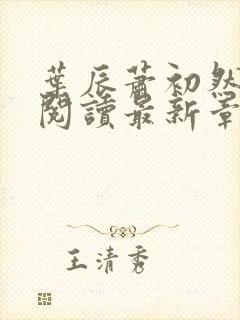 葉辰蕭初然
閱讀最新章
王清秀